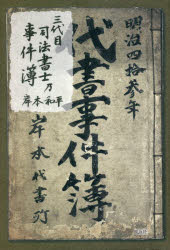 明治四拾参年
代書事件簿
岸本代書所
三代目
司法書士
事件簿
岸本和平